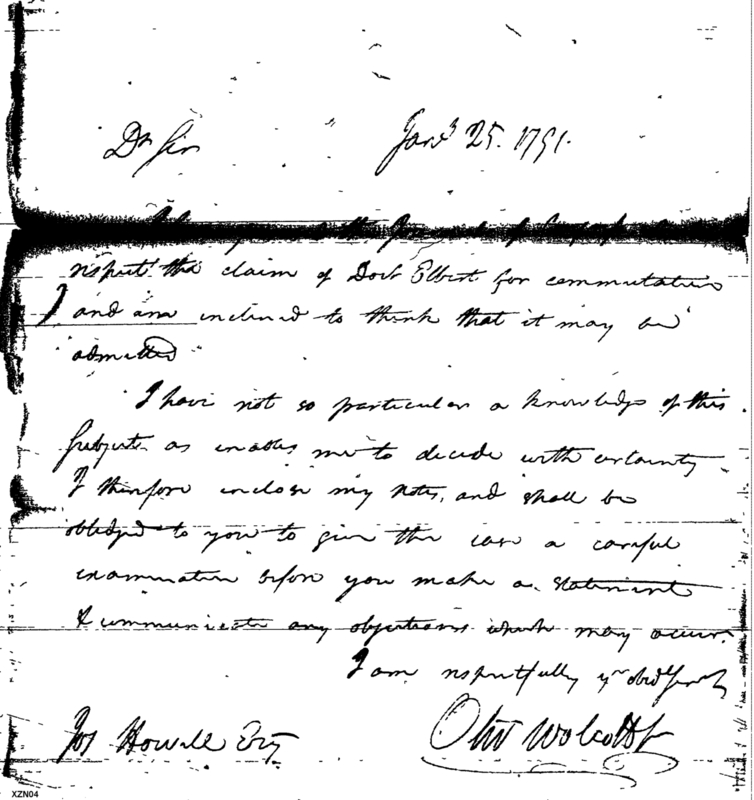 Dr Sir Jany 25. 1791.
I have the Journals of Congress
respect the claim of Doct Elbert for commutation
and am inclined to think that it may be
admitted
I have not so particular a knowledge of this
subject as enables me to decide with certainty
I therefore inclose my notes, and shall be
obliged to you to give the case a careful
examination before you make a statement
& communicate any objections which may occur.
I am respectfully yr obed Servt
Jos Howell Esq Olivr Wolcott Jr
XZN04